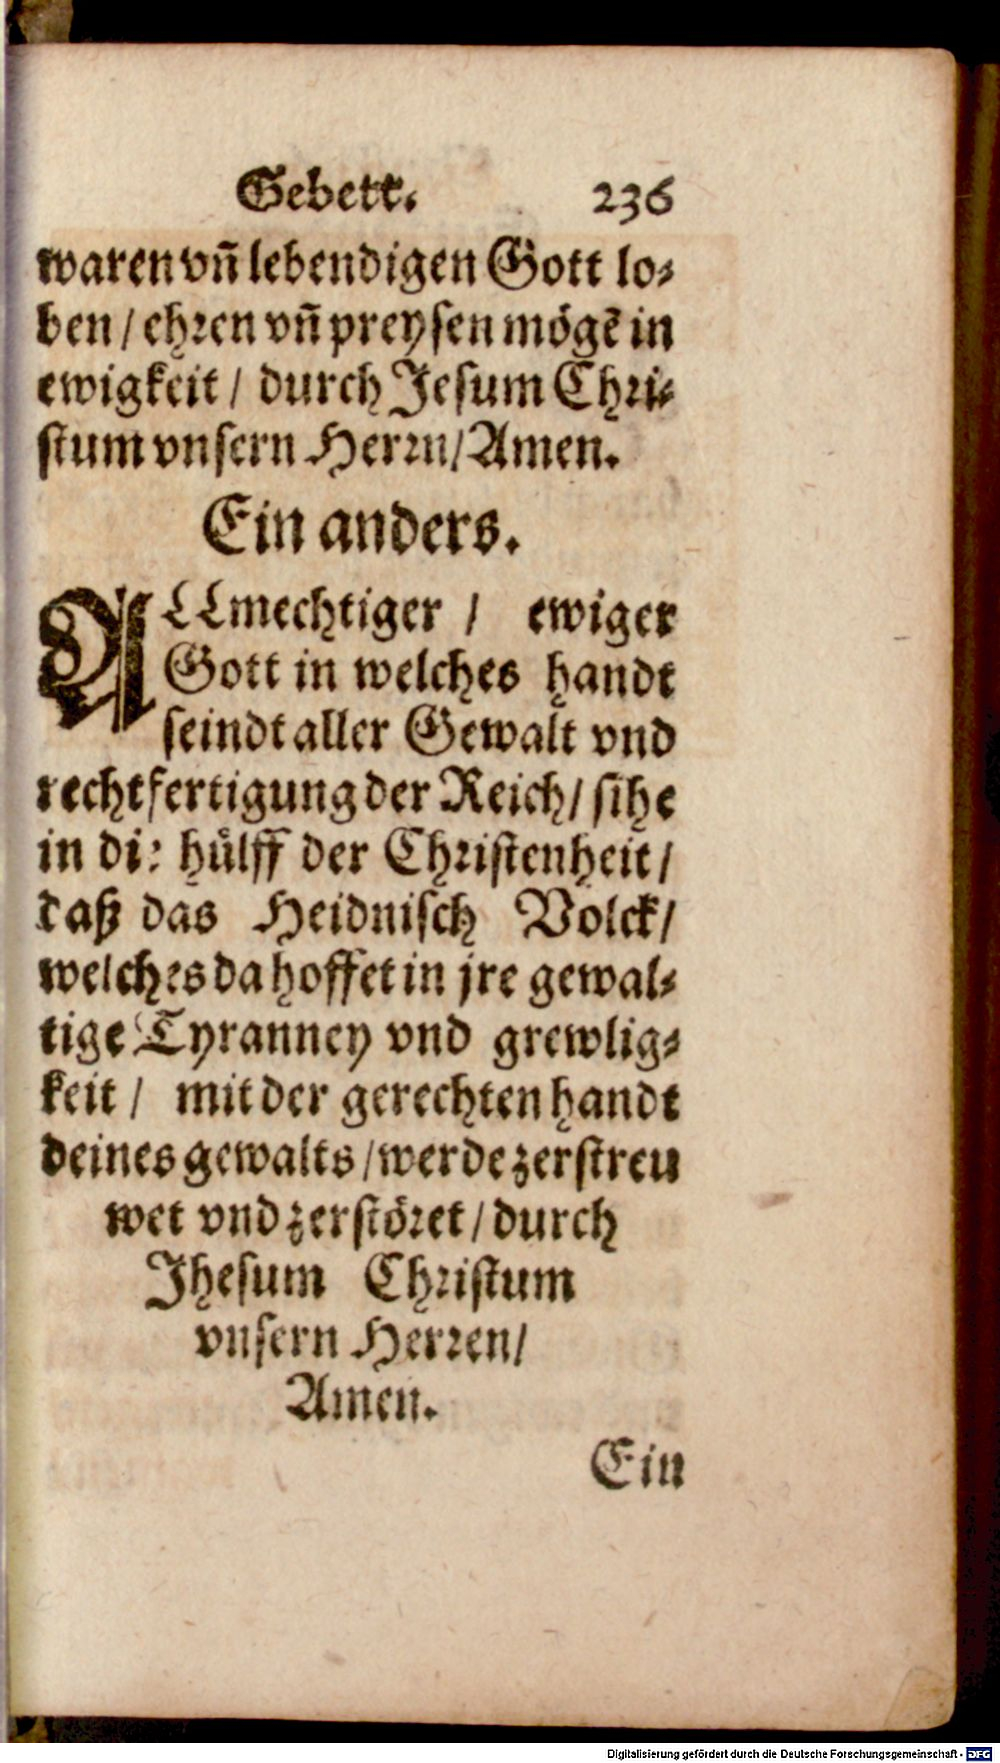 Gebett. 236
waren vn̄ lebendigen Gott lo⸗
ben / ehren vn̄ preysen mögē in
ewigkeit / durch Jesum Chri⸗
stum vnsern Herrn / Amen.
Ein anders.
ALLmechtiger / ewiger
Gott in welches handt
seindt aller Gewalt vnd
rechtfertigung der Reich / sihe
in die hülff der Christenheit /
daß das Heidnisch Volck /
welches da hoffet in jre gewal⸗
tige Tyranney vnd grewlig⸗
keit / mit der gerechten handt
deines gewalts / werde zerstreu
wet vnd zerstöret / durch
Jhesum Christum
vnsern Herren /
Amen.
Ein
Digitalisierung gefördert durch die Deutsche Forschungsgemeinschaft - DFG